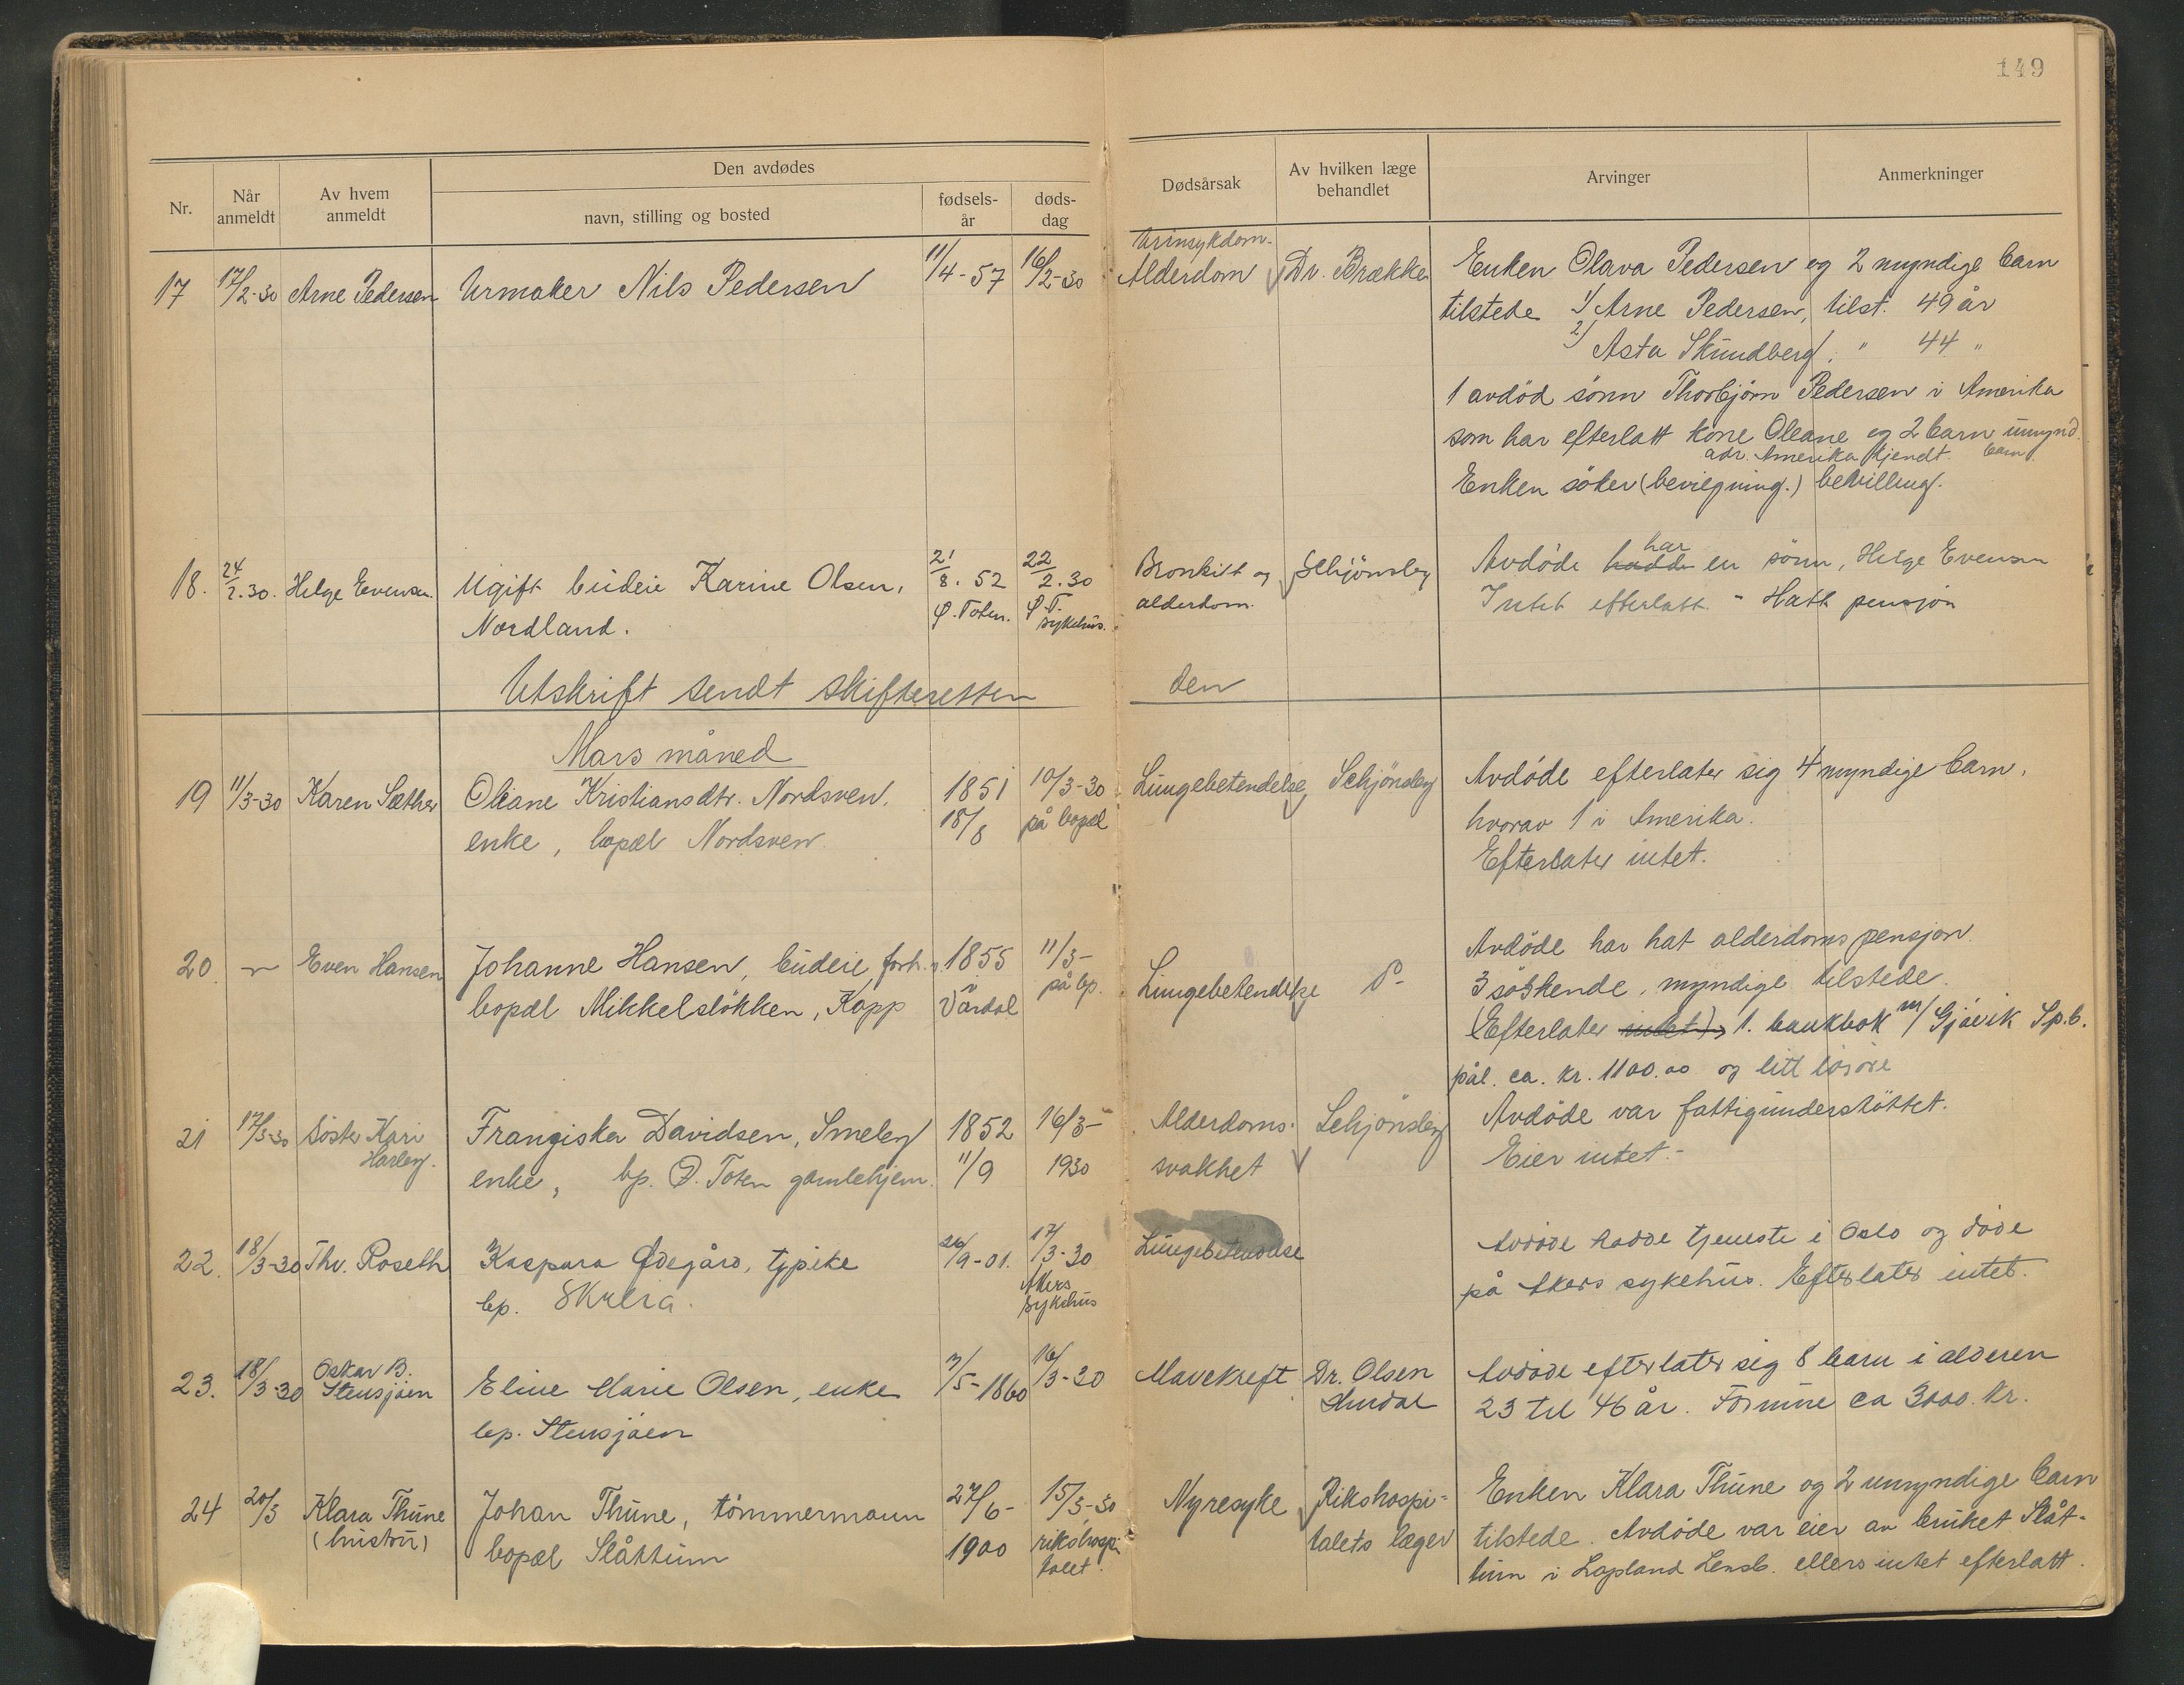 149
Nr. Når anmeldt Av hvem anmeldt Den avdødes navn, stilling og bosted fødselsår dødsdag Dødsårsak Av hvilken læge behandlet Arvinger Anmerkninger
17 17/2-30 Arne Pedersen Urmaker Nils Pedersen 11/4-57 16/2-30 Urinsykdom. Alderdom Dr. Brække Enken Olava Pedersen og 2 myndige barn
tilstede 1/ Arne Pedersen, tilst. 49 år
2/ Asta Skundberg, " 44 "
1 avdød sönn Thorbjörn Pedersen i Amerika
som har efterlatt kone Oleane og 2 barn umynd. barn
adr. Amerika kjendt.
Enken söker (bevilgning.) bevilling.
18. 24/2.30. Helge Evensen. Ugift budeie Karine Olsen, 21/8. 52 22/2.30 Bronkitt og Schjönsby Avdöde hadde har en sönn, Helge Evensen
Nordland. Ø. Toten. Ø.T. sykehus. alderdom. Intet efterlatt. - Hatt pensjon
Utskrift sendt skifteretten den
Mars måned
19 11/3-30 Karen Sæther Oliane Kristiansdtr. Nordsven, 1851 10/3-30 Lungebetendelse Schjönsby Avdöde efterlater sig 4 myndige barn,
enke, bopæl Nordsven 18/8 på bopæl hvorav 1 i Amerika.
Efterlater intet.
20. " Even Hansen Johanne Hansen, budeie, forh. 1855 11/3- Lungebetendelse Do- Avdöde har hat alderdomspensjon.
bopæl Mikkelslökken, Kapp Vardal på bp. 3 söskende, myndige tilstede.
(Efterlater intet) 1. bankbok m/ Gjövik Sp.b.
pål. ca. kr. 1100.00 og litt lösöre
21 17/3-30 Söster Kari Franziska Davidsen, Smeby 1852 16/3- Alderdoms- Schjönsby Avdöde var fattigunderstöttet.
enke, bp. Ø. Toten gamlehjem. 11/9 1930 svakhet Eier intet.-
22. 18/3-30 Thv. Roseth Kaspara Ødegård, tjpike 26/9-01. 17/3-30 Lungebetendelse Avdöde hadde tjeneste i Oslo og döde
bp. Skreia. Akers sykehus på Akers sykehus. Efterlater intet.
23. 18/3-30 Oskar B. Stensjöen Eline Marie Olsen, enke 7/5-1860 16/3-30 Mavekreft Dr. Olsen Avdöde efterlater sig 8 barn i alderen
bp. Stensjöen Hurdal 23 til 46 år. Formue ca 3000. kr.
24 20/3 Klara Thune Johan Thune, tömmermann 27/6- 15/3-30 Nyresyke Rikshospi- Enken Klara Thune og 2 umyndige barn
(hustru) bopæl Slåttum 1900 rikshospitalet. talets læger tilstede. Avdöde var eier av bruket Slåt-
tum i Lapland Lensb. ellers intet efterlatt.